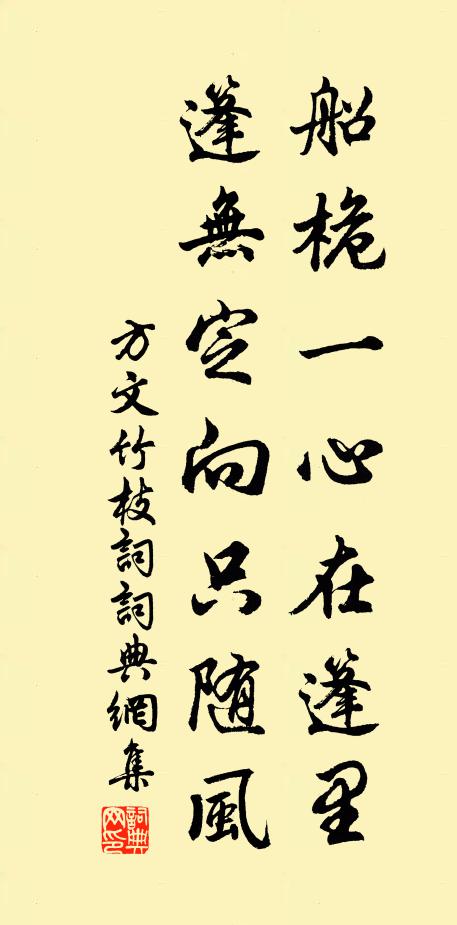 船桅一心在篷里
篷無定向只随風
方文竹枝詞詞典網集
詞典网印